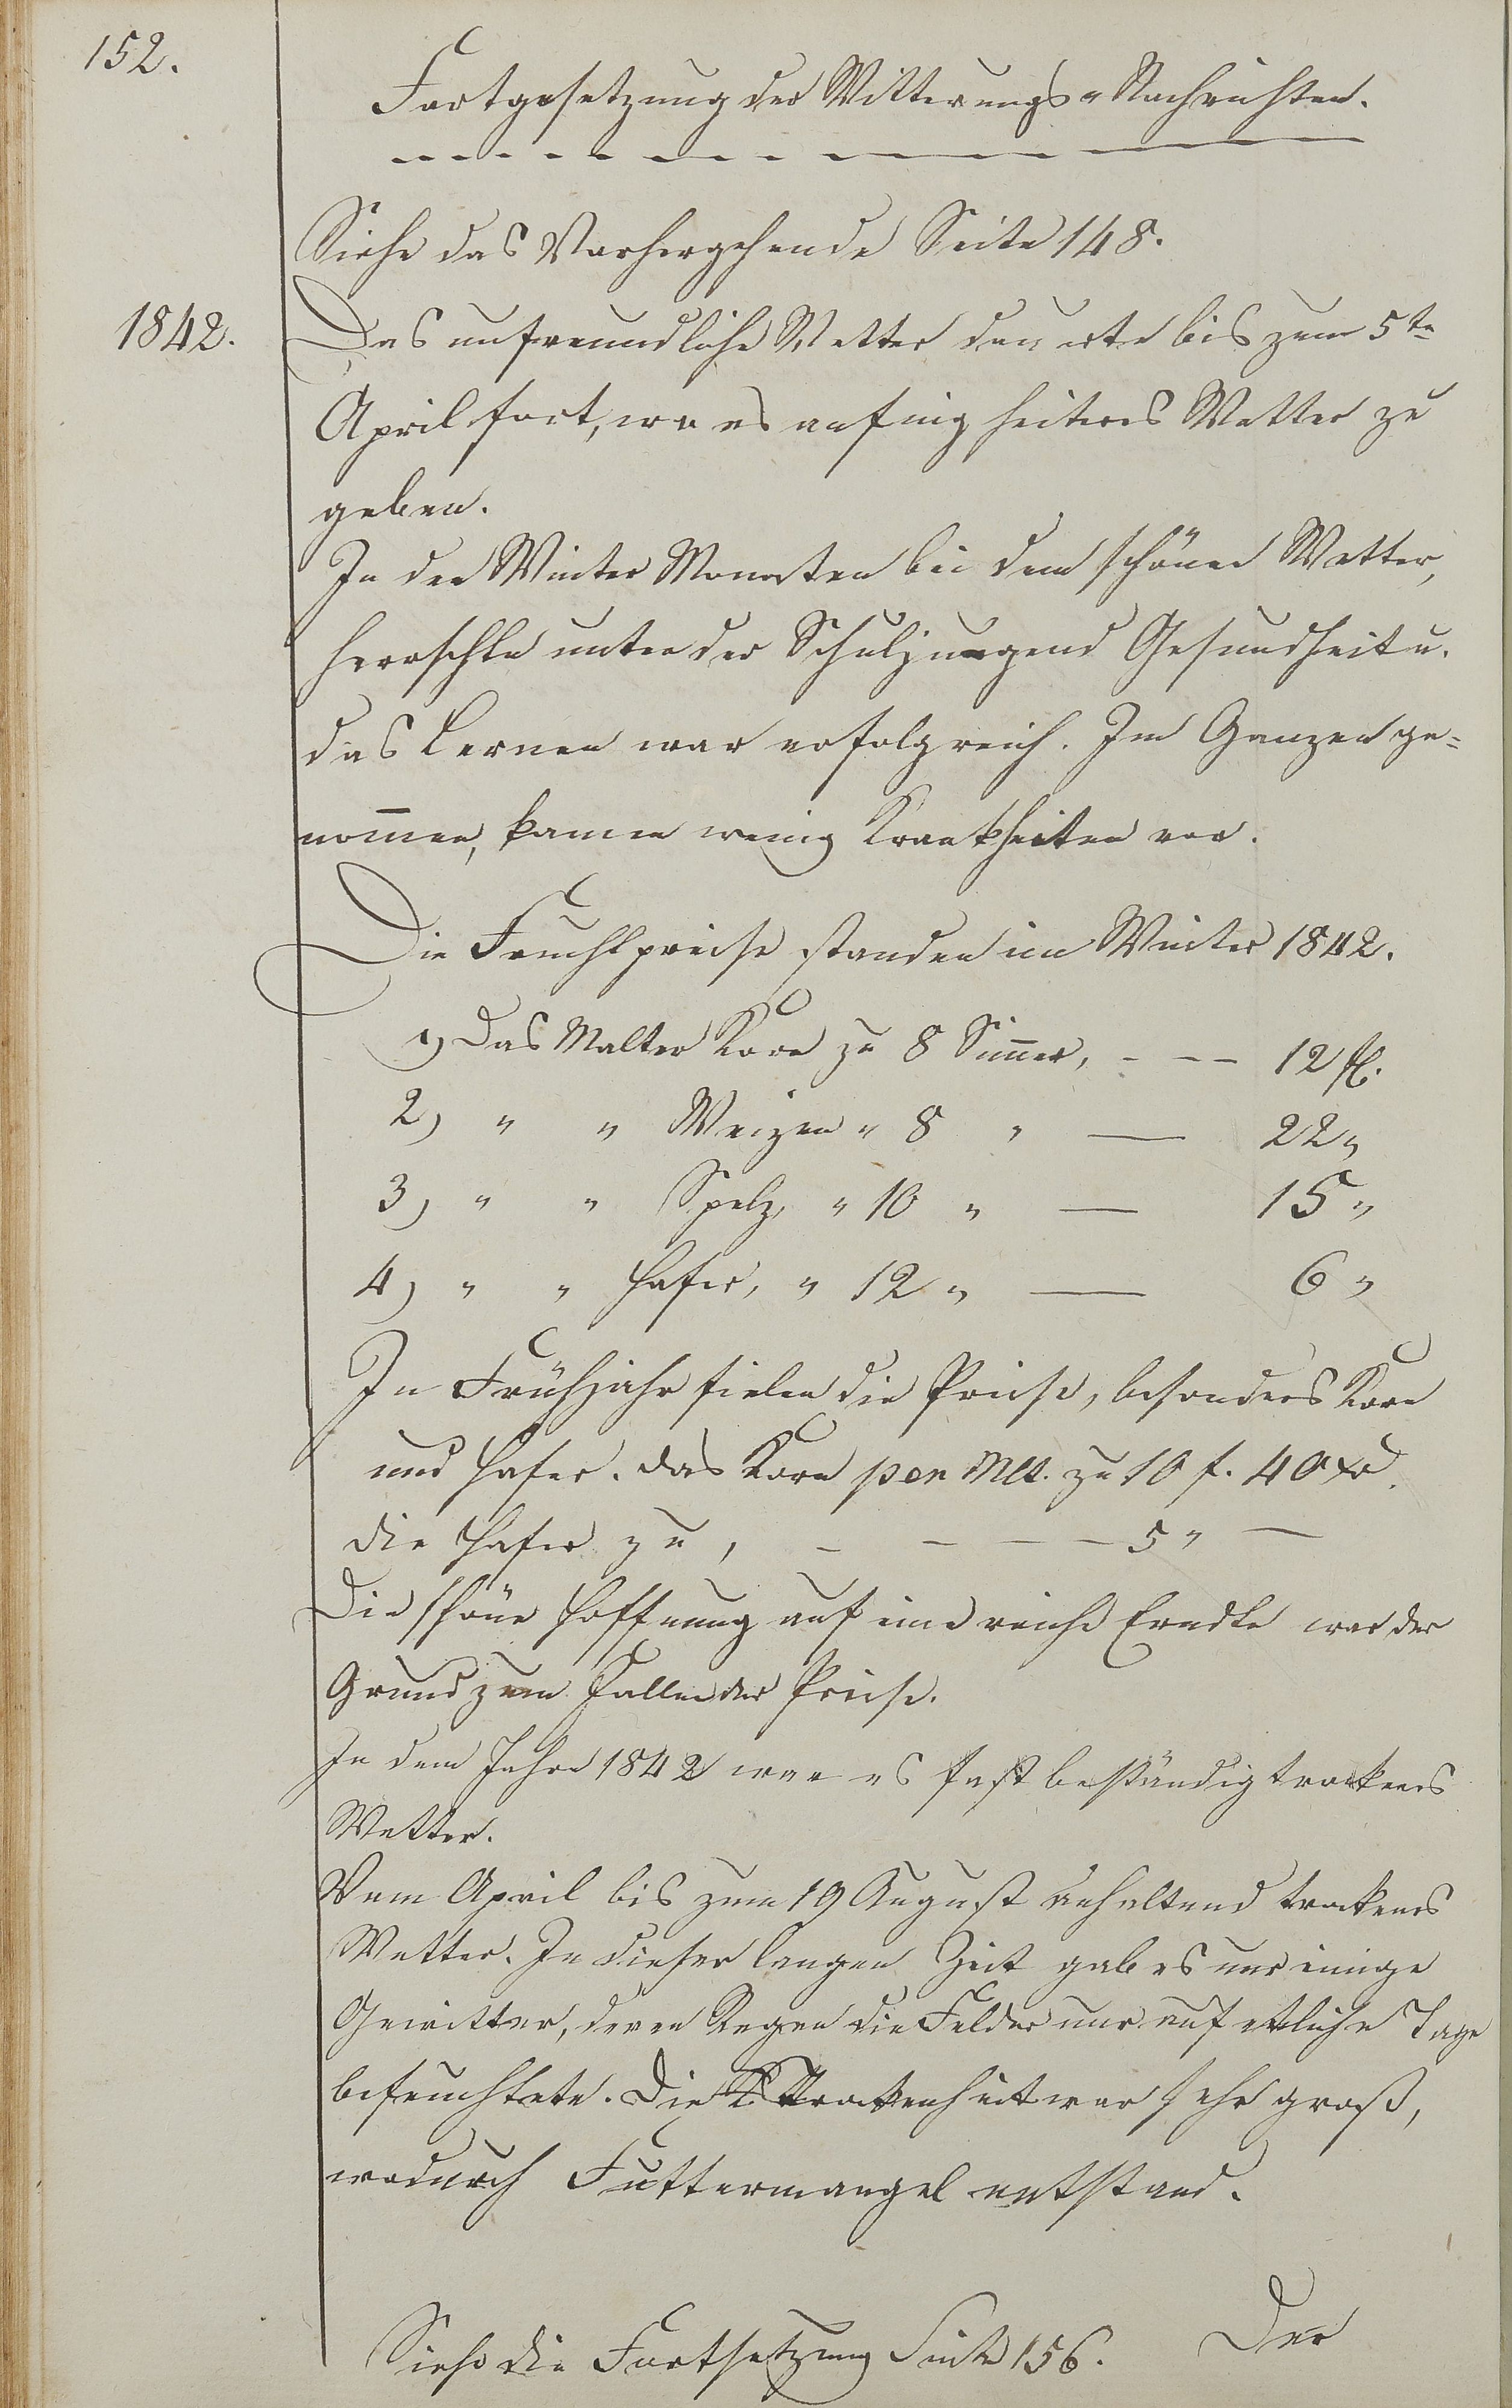 152.
Fortgesetzung der Witterungs-Nachrichten.
Siehe das Vorhergehende Seite 148.
1842.
Das unfreundliche Wetter dauerte bis zum 5te
April fort, wo es anfing heiteres Wetter zu
geben.
In den Winter Monaten bei dem schönen Wetter,
herrschte unter der Schuljungend Gesundheit u.
das Lernen war erfolgreich. Im Ganzen ge=
nom̅en, kamen wenig Krankheiten vor.
Die Fruchtpreise standen im Winter 1842.
1) Das Malter Korn zu 8 Sim̅er, - - - 12 fl.
2) " " Weizen " 8 " — 22 "
3) " " Spelz, " 10 " — 15 "
4) " " Hafer, " 12 " — 6 "
In Frühjahr fielen die Preise, besonders Korn
und Hafer. das Korn per Mlt. zu 10 f. 40 xr.
die Hafer zu, - - - - 5 " —
Die schöne Hoffnung auf eine reiche Erndte war der
Grund zum Fallen der Preise.
In dem Jahre 1842 war es fast beständig trockenes
Wetter.
Vom April bis zum 19 August anhaltend trockenes
Wetter. In dieser langen Zeit gab es nur einige
Gewitter, deren Regen die Felder nur auf etliche Tage
befeuchtete. Die Trockenheit war sehr groß,
wodurch Futtermangel entstand.
Der
Siehe die Fortsetzung Seite 156.